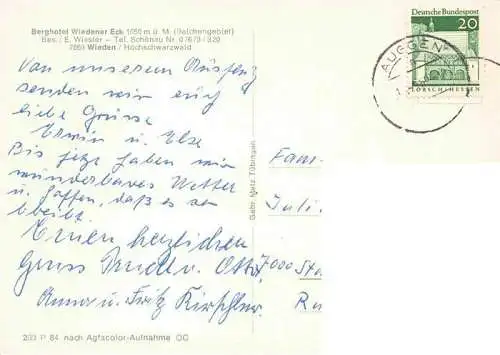 Berghotel Wiedener Eck 1050 m ü. M. (Belchengebiet)
Bes.: E. Wiesler – Tel. Schönau Nr. 07673 / 220
7869 Wieden / Hochschwarzwald
Von unserem Ausflug
senden wir euch
liebe Grüsse
Erwin u. Else
Bis jetzt haben wir
wunderbares Wetter
u. hoffen, daß es so
bleibt
Einen herzlichen
Gruss Trudel u. Otto,
Anna u. Fritz Kirschler
283 P 84 nach Agfacolor-Aufnahme
Gebr. Metz Tübingen
Deutsche Bundespost
20
LORSCH/HESSEN
AUGGEN
Fam.
Juli
7000 St